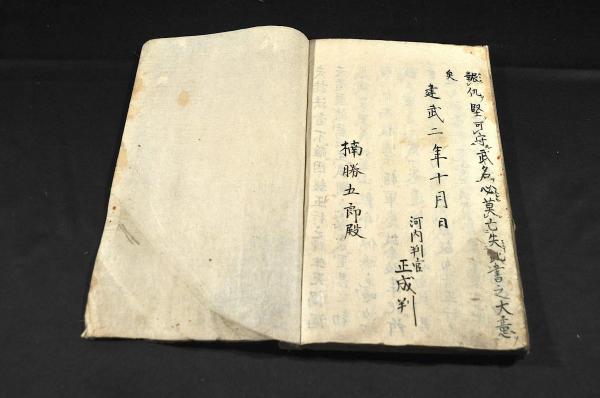 報仇堅可守武名必莫亡失此書之大意
矣
建武二年十月日
河内判官
正成判
楠勝五郎殿